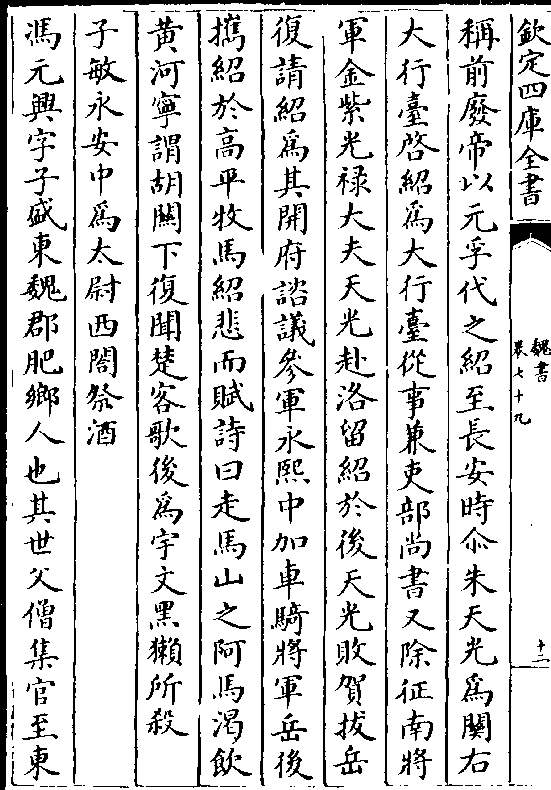 欽定四庫全書
魏書
卷七十九
十二
稱前廢帝以元孚代之紹至長安時尒朱天光爲關右
大行臺啓紹爲大行臺從事兼吏部尚書又除征南將
軍金紫光禄大夫天光赴洛留紹於後天光敗賀拔岳
復請紹爲其開府諮議參軍永熙中加車騎將軍岳後
攜紹於高平牧馬紹悲而賦詩曰走馬山之阿馬渴飲
黄河寧謂胡關下復聞楚客歌後爲宇文黑獺所殺
子敏永安中爲太尉西閤祭酒
馮元興字子盛東魏郡肥鄉人也其世父僧集官至東